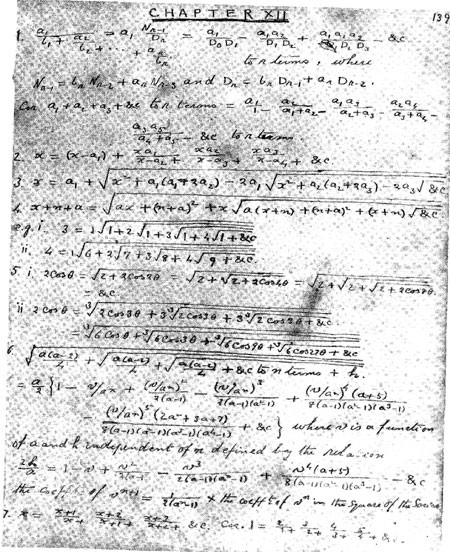 CHAPTER XII
139
1. a₁/b₁ + a₂/b₂ + ... + aₙ/bₙ = a₁ Nₙ₋₁/Dₙ = a₁/D₀D₁ − a₁a₂/D₁D₂ + a₁a₂a₃/D₂D₃ − &c
to n terms, where
Nₙ₋₁ = bₙ Nₙ₋₂ + aₙ Nₙ₋₃ and Dₙ = bₙ Dₙ₋₁ + aₙ Dₙ₋₂.
Cor. a₁ + a₂ + a₃ + &c to n terms = a₁/1 − a₂/a₁+a₂ − a₁a₃/a₂+a₃ − a₂a₄/a₃+a₄ −
a₃a₅/a₄+a₅ − &c to n terms.
2. x = (x−a₁) + xa₁/x−a₂ + xa₂/x−a₃ + xa₃/x−a₄ + &c.
3. x = a₁ + √x² + a₁(a₁+2a₂) − 2a₁√x² + a₂(a₂+2a₃) − 2a₃√&c
4. x+n+a = √ax + (n+a)² + x√a(x+n) + (n+a)² + (x+n)√&c
e.g. i. 3 = √1+2√1+3√1+4√1+&c
ii. 4 = √6+2√7+3√8+4√9+&c.
5. i. 2cosθ = √2+2cos2θ = √2+√2+2cos4θ = √2+√2+√2+2cos8θ.
= &c
ii 2cosθ = ∛2cos3θ + 3∛2cos3θ + 3∛2cos3θ + &c.
= ∛6cosθ + ∛6cos3θ + ∛6cos9θ + ∛6cos27θ + &c
6. √a(a−2)/4 + √a(a−2)/4 + √a(a−2)/4 + &c to n terms + h.
= a/2 {1 − v/aⁿ + (v/aⁿ)²/2(a−1) − (v/aⁿ)³/2(a−1)(a²−1) + (v/aⁿ)⁴(a+5)/8(a−1)(a²−1)(a³−1)
(v/aⁿ)⁵(2a²+3a+7)/8(a−1)(a²−1)(a³−1)(a⁴−1) + &c} where v is a function
of a and h independent of n defined by the relation
2h/a = 1 − v + v²/2(a−1) − v³/2(a−1)(a²−1) + v⁴(a+5)/8(a−1)(a²−1)(a³−1) − &c
the coefft. of vⁿ⁺¹ = 1/2(aⁿ−1) × the coefft of vⁿ⁺¹ in the square of the series
7. x = x+1/x+ x+2/x+1+ x+3/x+2+ &c. Cor. 1 = 2/1+ 3/2+ 4/3+ 5/4+ &c.